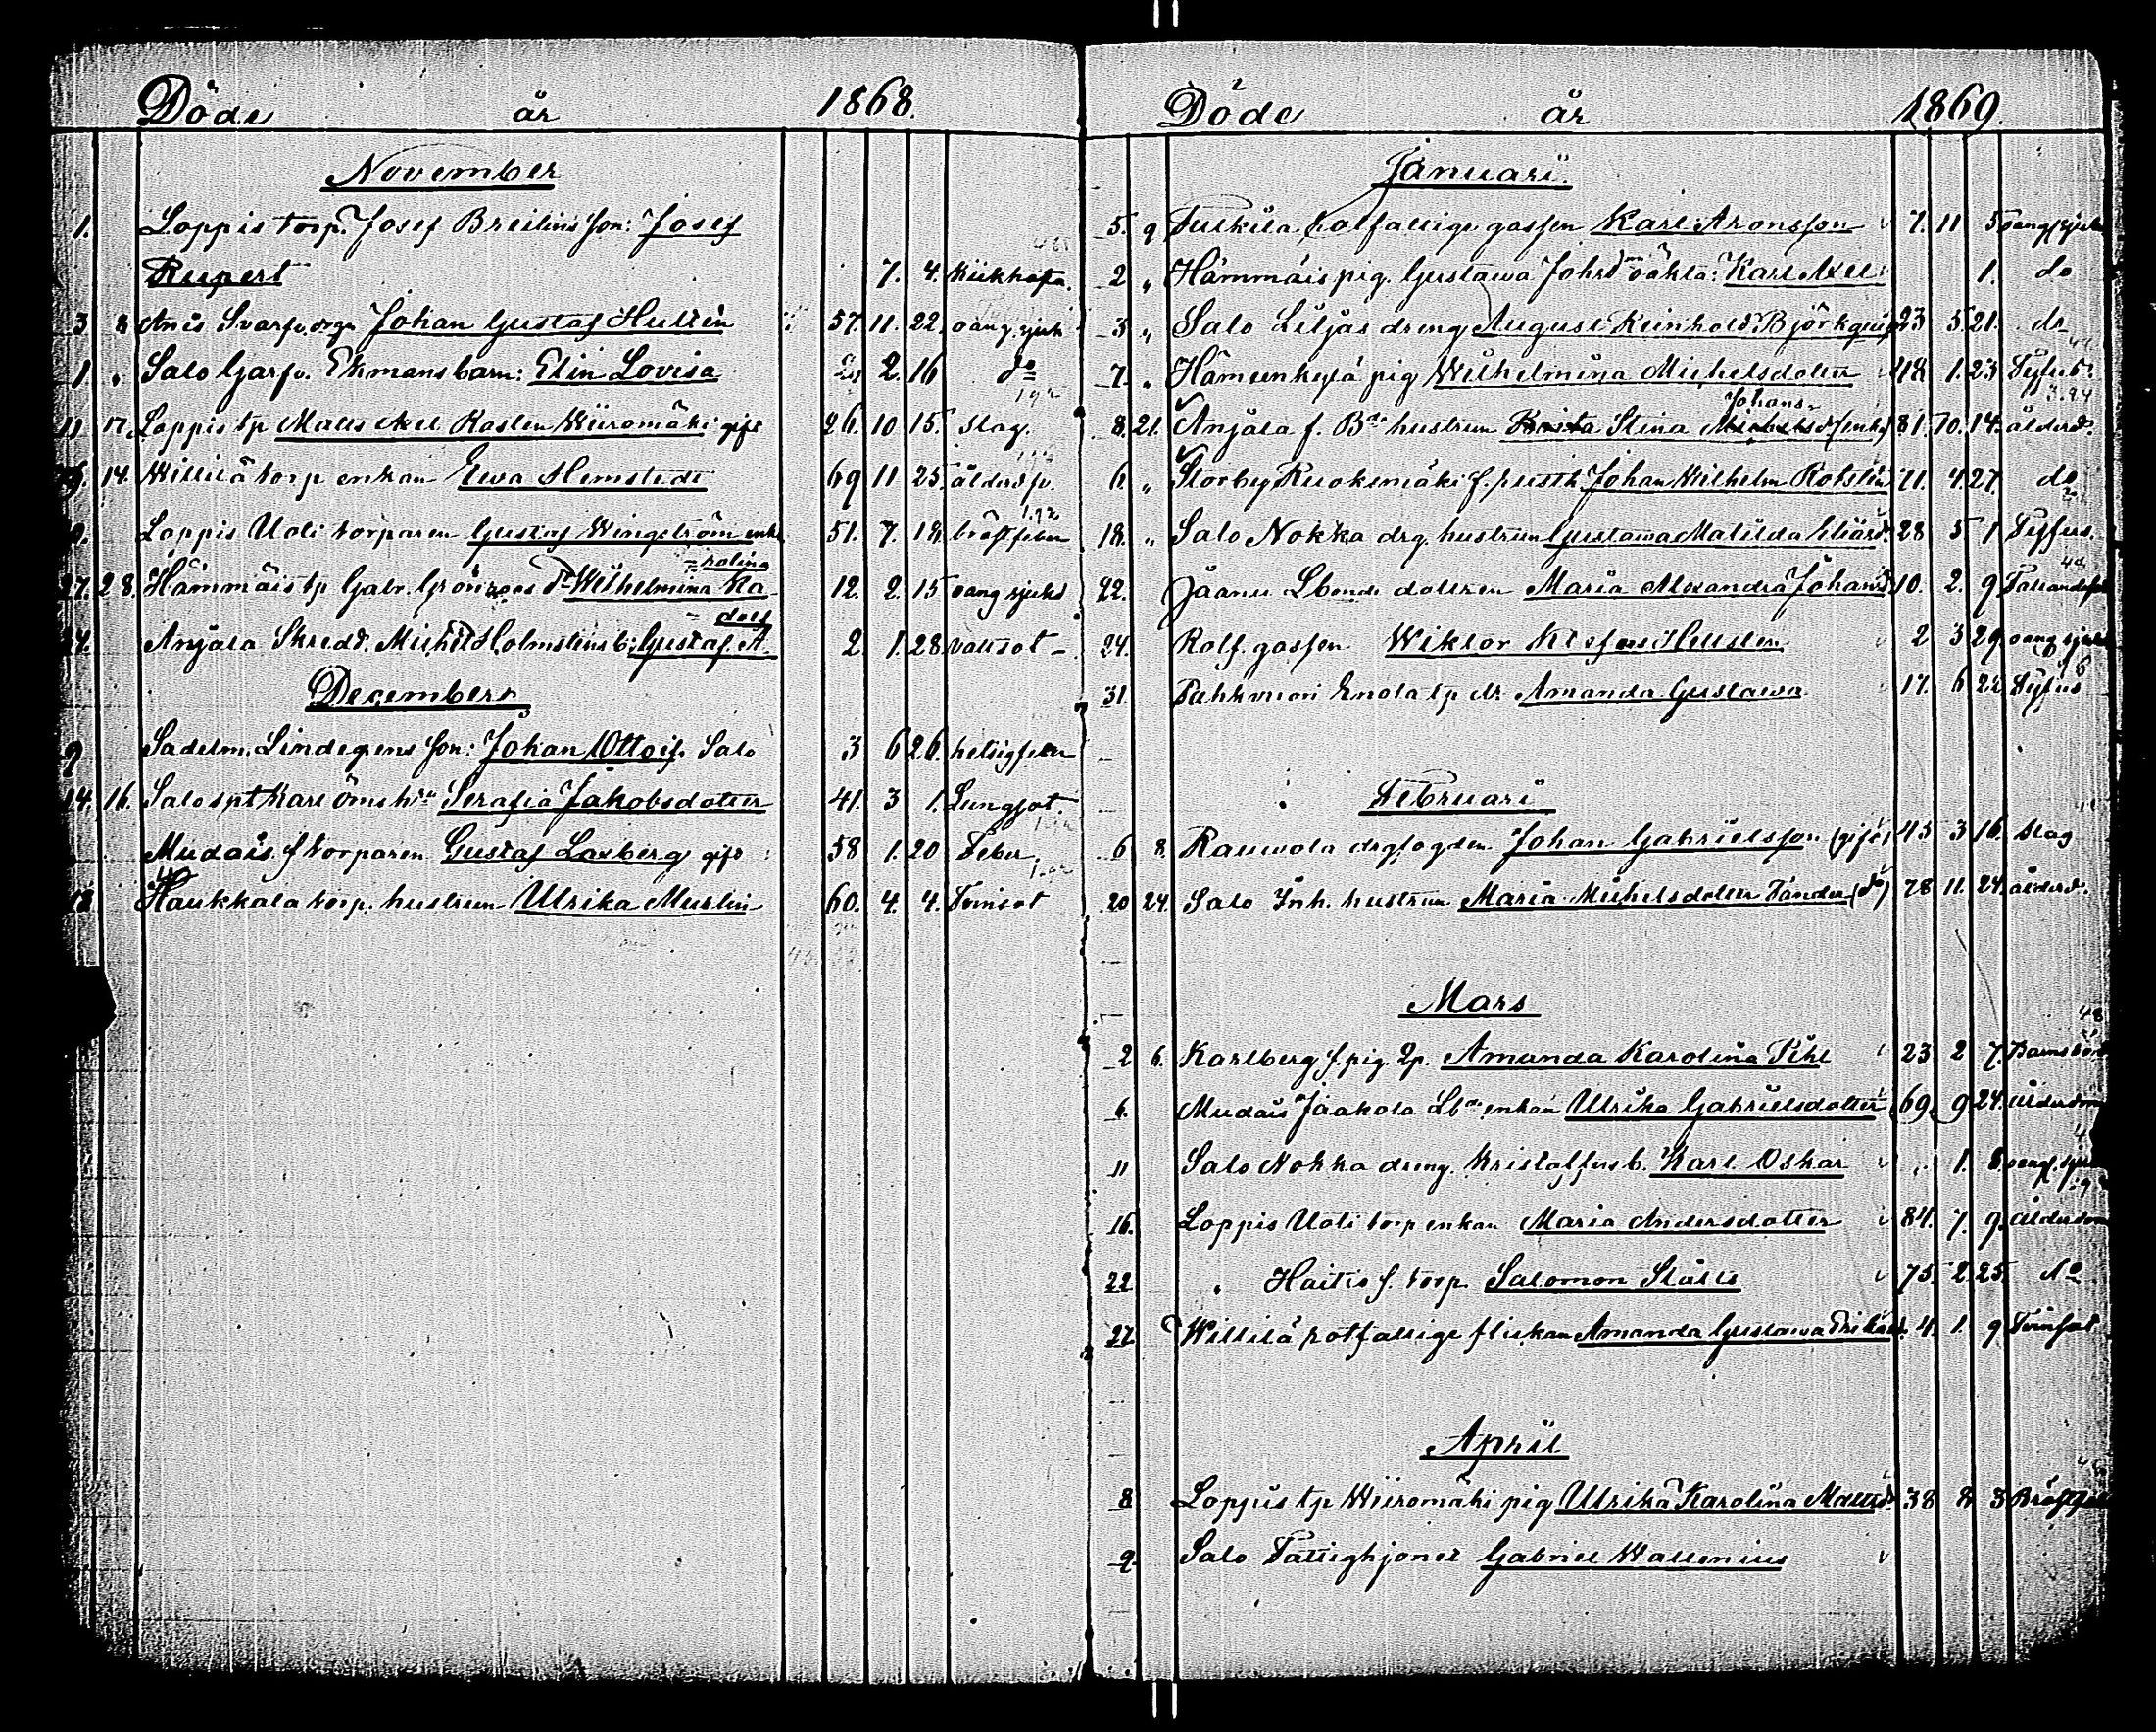 Döde år 1868.
November
1. Loppis torp. Josef Breilins son: Josef
Rupert 7. 4. Kikhosta.
3 8 Anis Svarfv. drgn Johan Gustaf Hullin 57. 11. 22. oang. sjuk
1. " Salo Garfv. Ekmans barn: Elin Lovisa 2, 2. 16 do
11 17. Loppis tp Matts Axel Kasten Wiiromäki gift 26. 10 15. Slag.
14. Willilä torp enkan Ewa Hemstedt 69 11 25. ålderd.
Loppis Uoti torparen Gustaf Wingström enkl 51. 7. 18. bröstfeber
=rolina
27. 28. Hämmäis tp Gabr. Grönroos dr Wilhelmina Ka= 12. 2. 15 oang sjukd
=dolf
Anjala Skredd. Michel Holmstens b: Gustaf A= 2. 1. 28. vattsot
December
9 Sadelm. Lindegrens son: Johan Ottoif. Salo 3 6 26. hetsigfeber
14. 16. Salo spt Karl Öms hru Serafia Jakobsdotter 41. 3 1. Lungsot.
Mudais f torparen Gustaf Laxberg gift 58 1. 20 Feber.
18. Haukkala torp. hustrun Ulrika Murlin 60. 4. 4. Tvinsot
Döde år 1869.
Januari.
5. 9 Tuikila rotfattige gossen Karl Aronsson 7. 11 5 oang sjuk
2 " Hämmäis pig. Gustawa Johsd:m oäkta: Karl Axel 1. do
3 " Salo Liljas dreng August Reinhold Björkqvist 23 5. 21. do
7. " Hämeenkylä pig Wilhelmina Michelsdotter 48 1. 23 Tyfus.
Johans-
8. 21. Anjala f. Bde hustrun Kaisa Stina Michelsd (enk.) 81. 10. 14. ålderd.
6 " Storby Ruoksmäki f. pusth Johan Wilhelm Rotsten 71. 4. 27. do
18. " Salo Nokka drg. hustrun Gustawa Matilda Eliasd. 28 5 1 Tyfus.
22. Jaanu Lbonde dottren Maria Alexandra Johansd 10. 2. 9 Fallandesot
24. Rotf. gossen Wiktor Klefas Hellsten 2 3 29 oang sjukd
31. Pahkmori Enola tp dr Amanda Gustawa 17. 6 22 Tyfus
Februari
6 8. Rauwola drgfogden Johan Gabrielsson (gift) 45 3 16. Slag
20 24. Salo Inh. hustrun Maria Michelsdotter Tander (do) 78 11. 24. ålderd.
Mars
2 6. Karlberg f. pig. 2p. Amanda Karolina Pihl 23 2 7. Barnsbörd
6. Mudais Jaakola Lbde enkan Ulrika Gabrielsdotter 69 9 24. Ålderdom
11 Salo Nokka dreng. Kristoffers b. Karl Oskar " 1. 8 oang. sjuk
16. Loppis Uoti torp enkan Maria Andersdotter 84. 7. 9. Ålderdom
22 " Haitio f. torp Salomon Ståhl 75. 2. 25. do
27. Willilä rotfattige flickan Amanda Gustawa Eriksd. 4. 1. 9 Tvinsot
April
8 Loppis tp Wiiromäki pig Ulrika Karolina Mattsd 38 8 3 Bröstfeber
9 Salo Fattighjonet Gabriel Wallenius